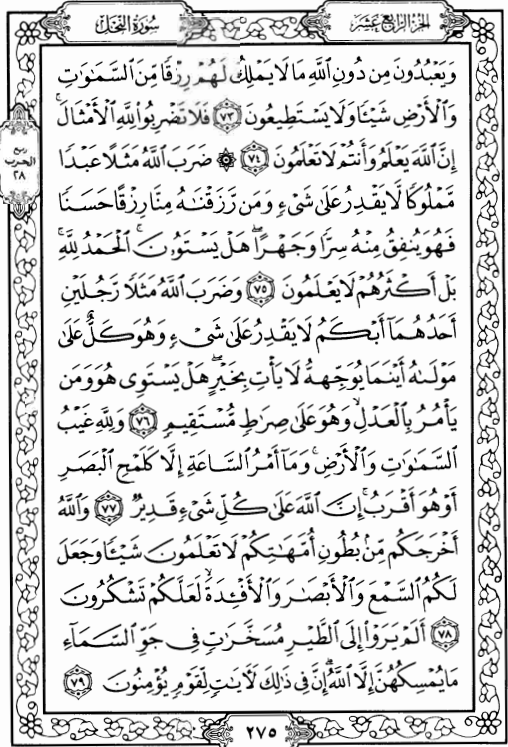 الجزء الرابع عشر
سورة النحل
وَيَعْبُدُونَ مِن دُونِ اللَّهِ مَا لَا يَمْلِكُ لَهُمْ رِزْقًا مِّنَ السَّمَٰوَٰتِ
وَالْأَرْضِ شَيْئًا وَلَا يَسْتَطِيعُونَ ﴿٧٣﴾ فَلَا تَضْرِبُوا لِلَّهِ الْأَمْثَالَ ۚ
إِنَّ اللَّهَ يَعْلَمُ وَأَنتُمْ لَا تَعْلَمُونَ ﴿٧٤﴾ ۞ ضَرَبَ اللَّهُ مَثَلًا عَبْدًا
مَّمْلُوكًا لَّا يَقْدِرُ عَلَىٰ شَىْءٍ وَمَن رَّزَقْنَٰهُ مِنَّا رِزْقًا حَسَنًا
فَهُوَ يُنفِقُ مِنْهُ سِرًّا وَجَهْرًا ۖ هَلْ يَسْتَوُۥنَ ۚ الْحَمْدُ لِلَّهِ ۚ
بَلْ أَكْثَرُهُمْ لَا يَعْلَمُونَ ﴿٧٥﴾ وَضَرَبَ اللَّهُ مَثَلًا رَّجُلَيْنِ
أَحَدُهُمَآ أَبْكَمُ لَا يَقْدِرُ عَلَىٰ شَىْءٍ وَهُوَ كَلٌّ عَلَىٰ
مَوْلَىٰهُ أَيْنَمَا يُوَجِّههُّ لَا يَأْتِ بِخَيْرٍ ۖ هَلْ يَسْتَوِى هُوَ وَمَن
يَأْمُرُ بِالْعَدْلِ ۙ وَهُوَ عَلَىٰ صِرَٰطٍ مُّسْتَقِيمٍ ﴿٧٦﴾ وَلِلَّهِ غَيْبُ
السَّمَٰوَٰتِ وَالْأَرْضِ ۚ وَمَآ أَمْرُ السَّاعَةِ إِلَّا كَلَمْحِ الْبَصَرِ
أَوْ هُوَ أَقْرَبُ ۚ إِنَّ اللَّهَ عَلَىٰ كُلِّ شَىْءٍ قَدِيرٌ ﴿٧٧﴾ وَاللَّهُ
أَخْرَجَكُم مِّنۢ بُطُونِ أُمَّهَٰتِكُمْ لَا تَعْلَمُونَ شَيْئًا وَجَعَلَ
لَكُمُ السَّمْعَ وَالْأَبْصَٰرَ وَالْأَفْـِٔدَةَ ۙ لَعَلَّكُمْ تَشْكُرُونَ
﴿٧٨﴾ أَلَمْ يَرَوْا إِلَى الطَّيْرِ مُسَخَّرَٰتٍ فِى جَوِّ السَّمَآءِ
مَا يُمْسِكُهُنَّ إِلَّا اللَّهُ ۗ إِنَّ فِى ذَٰلِكَ لَءَايَٰتٍ لِّقَوْمٍ يُؤْمِنُونَ ﴿٧٩﴾
ربع
الحزب
٢٨
٢٧٥